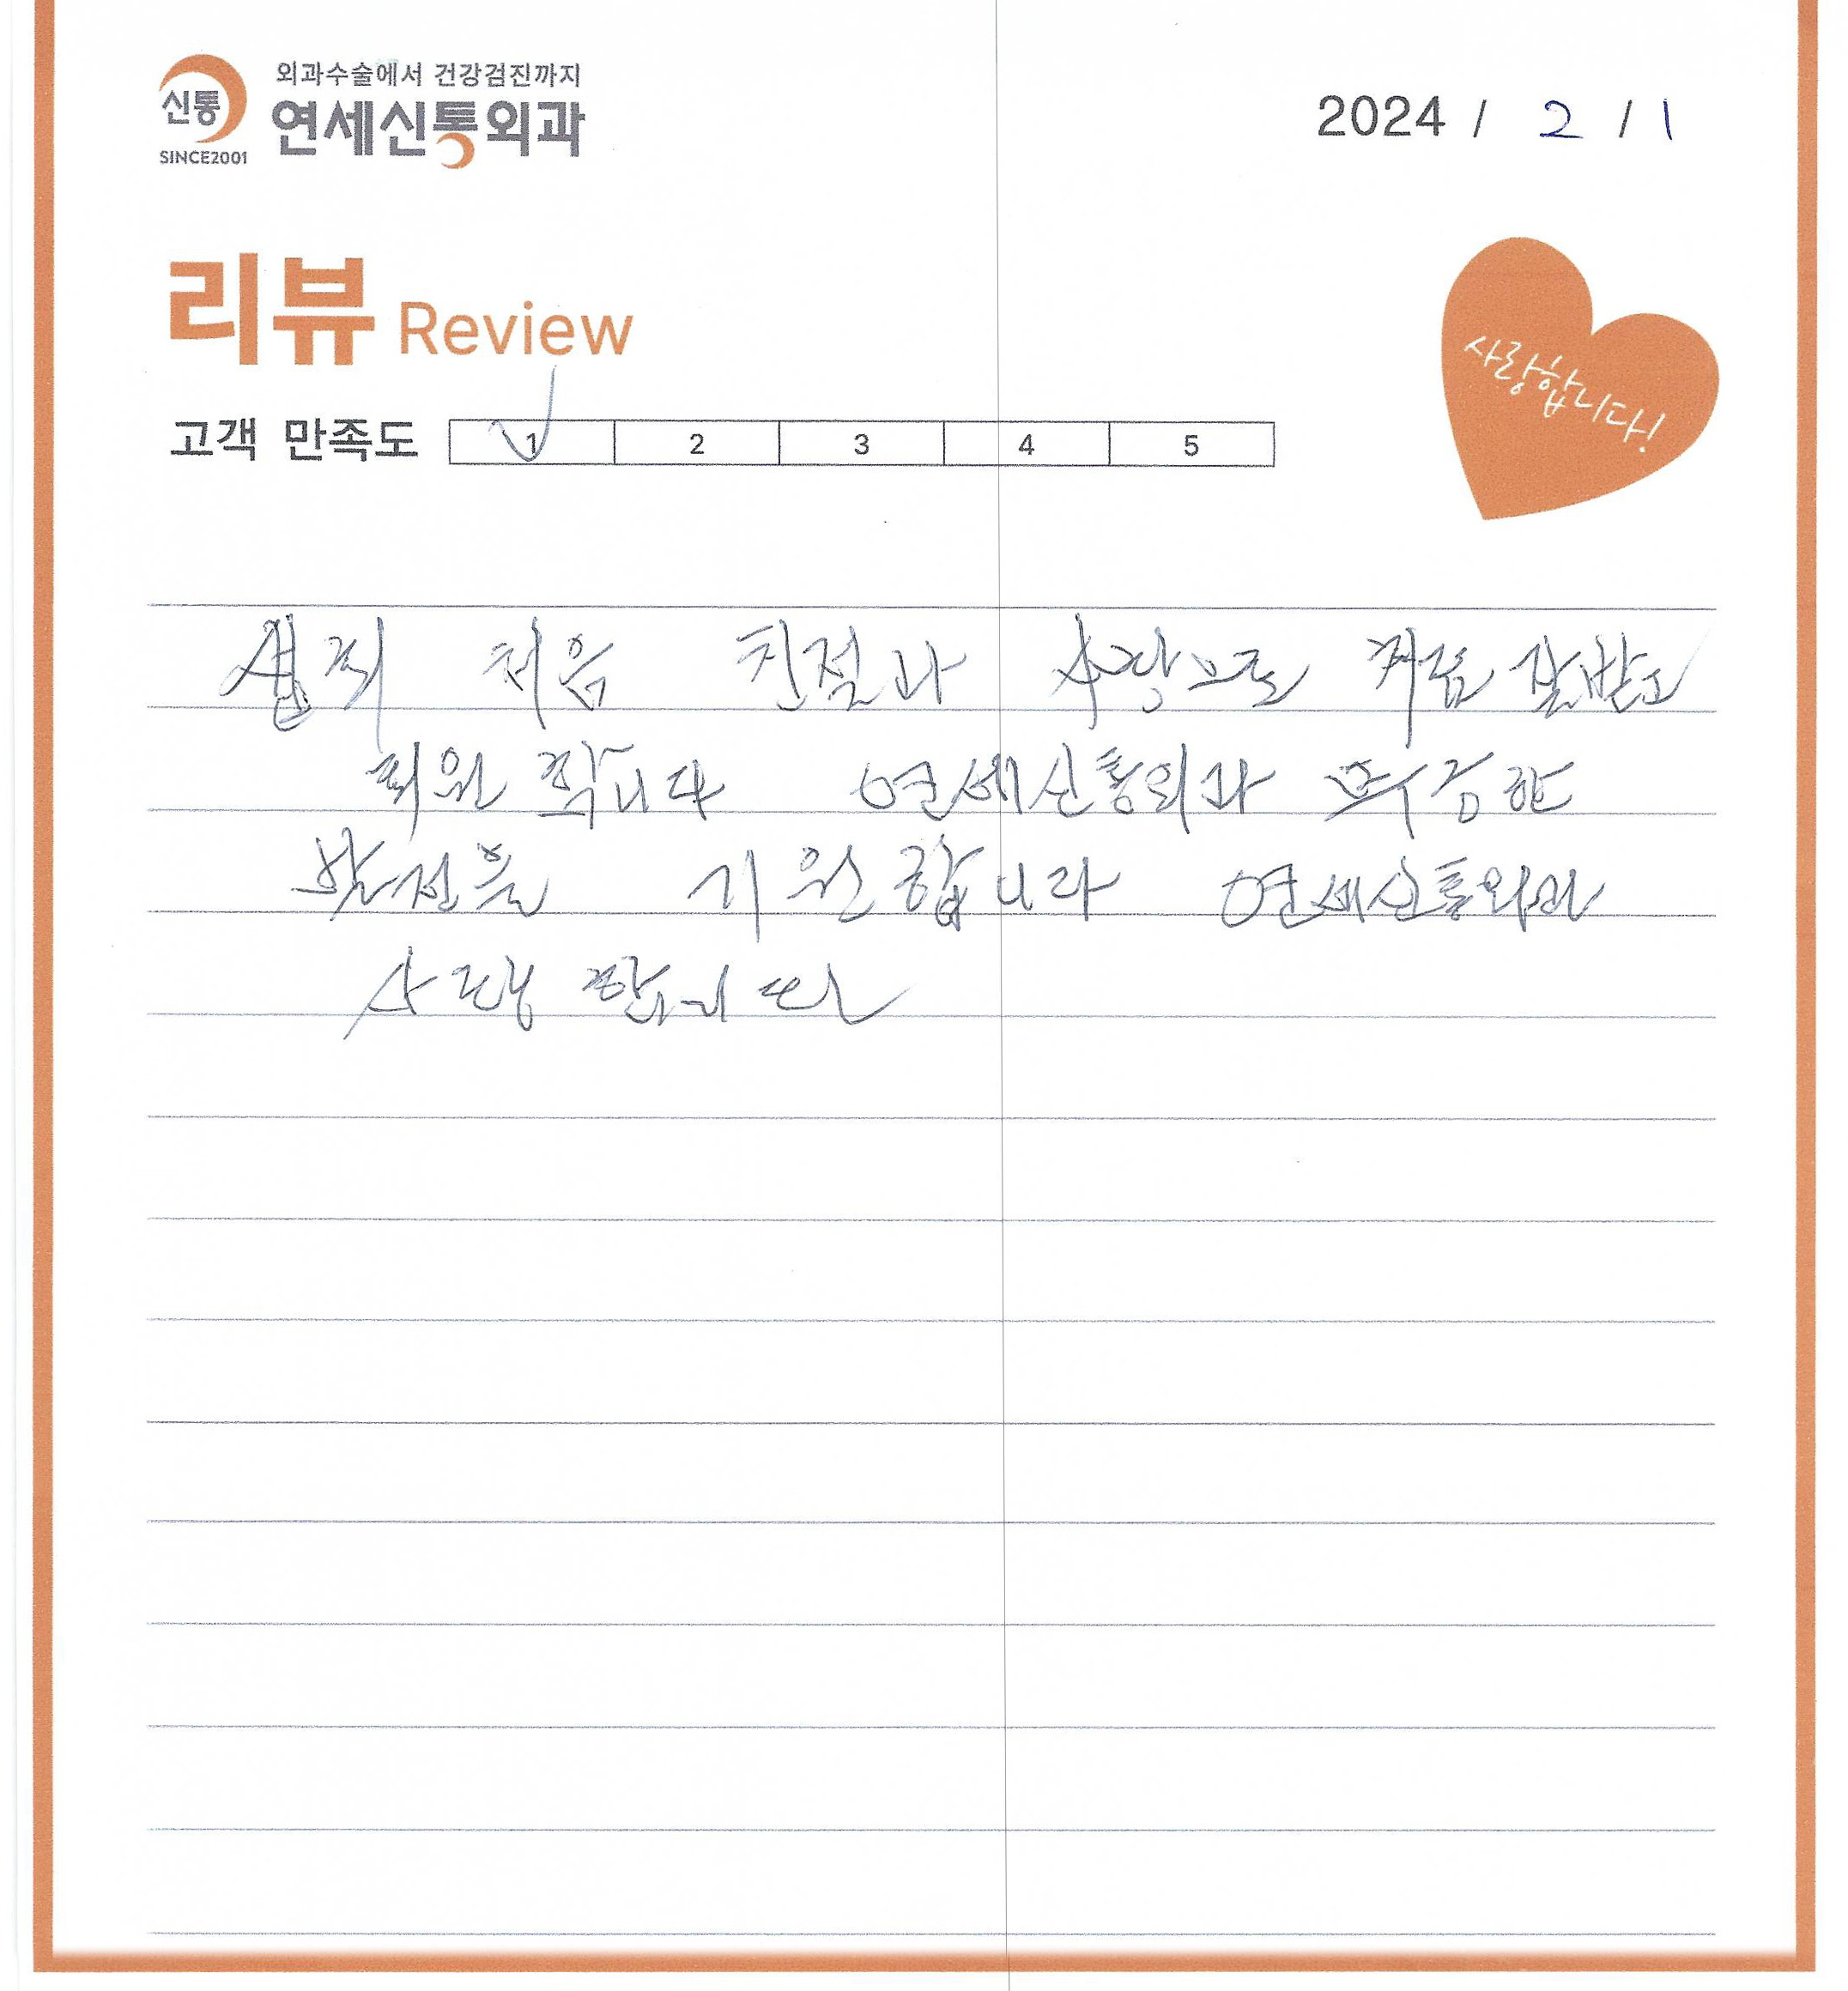 신통
SINCE2001
외과수술에서 건강검진까지
연세신통외과
2024 / 2 / 1
리뷰 Review
사랑합니다!
고객 만족도 1 2 3 4 5
처음 친절과 사랑으로 잘받고
퇴원 합니다 연세신통외과 무궁한
발전을 기원합니다 연세신통외과
사랑 합니다